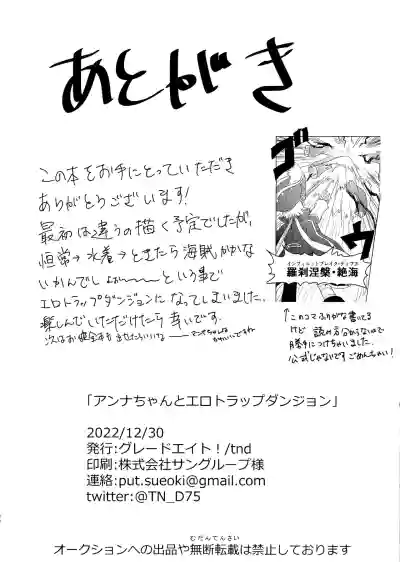 あとがき
この本をお手にとっていただき
ありがとうございます!
最初は違うの描く予定でしたが、
恒常→水着→ときたら海賊かかな
いかんでしょぉーーという事で
エロトラップダンジョンになってしまいました。
楽しんでいただけたら幸いです。
ゴ
インフィニットブレイク・ディプス
羅刹涅槃・絶海
ウ
↑このコマふりがな書いてる
けど 読み方分からないので
勝手につけちゃいました。
公式じゃないです ごめんちゃい!
「アンナちゃんとエロトラップダンジョン」
2022/12/30
発行:グレードエイト!/tnd
印刷:株式会社サングループ様
連絡:put.sueoki@gmail.com
twitter:@TN_D75
むだんてんさい
オークションへの出品や無断転載は禁止しております